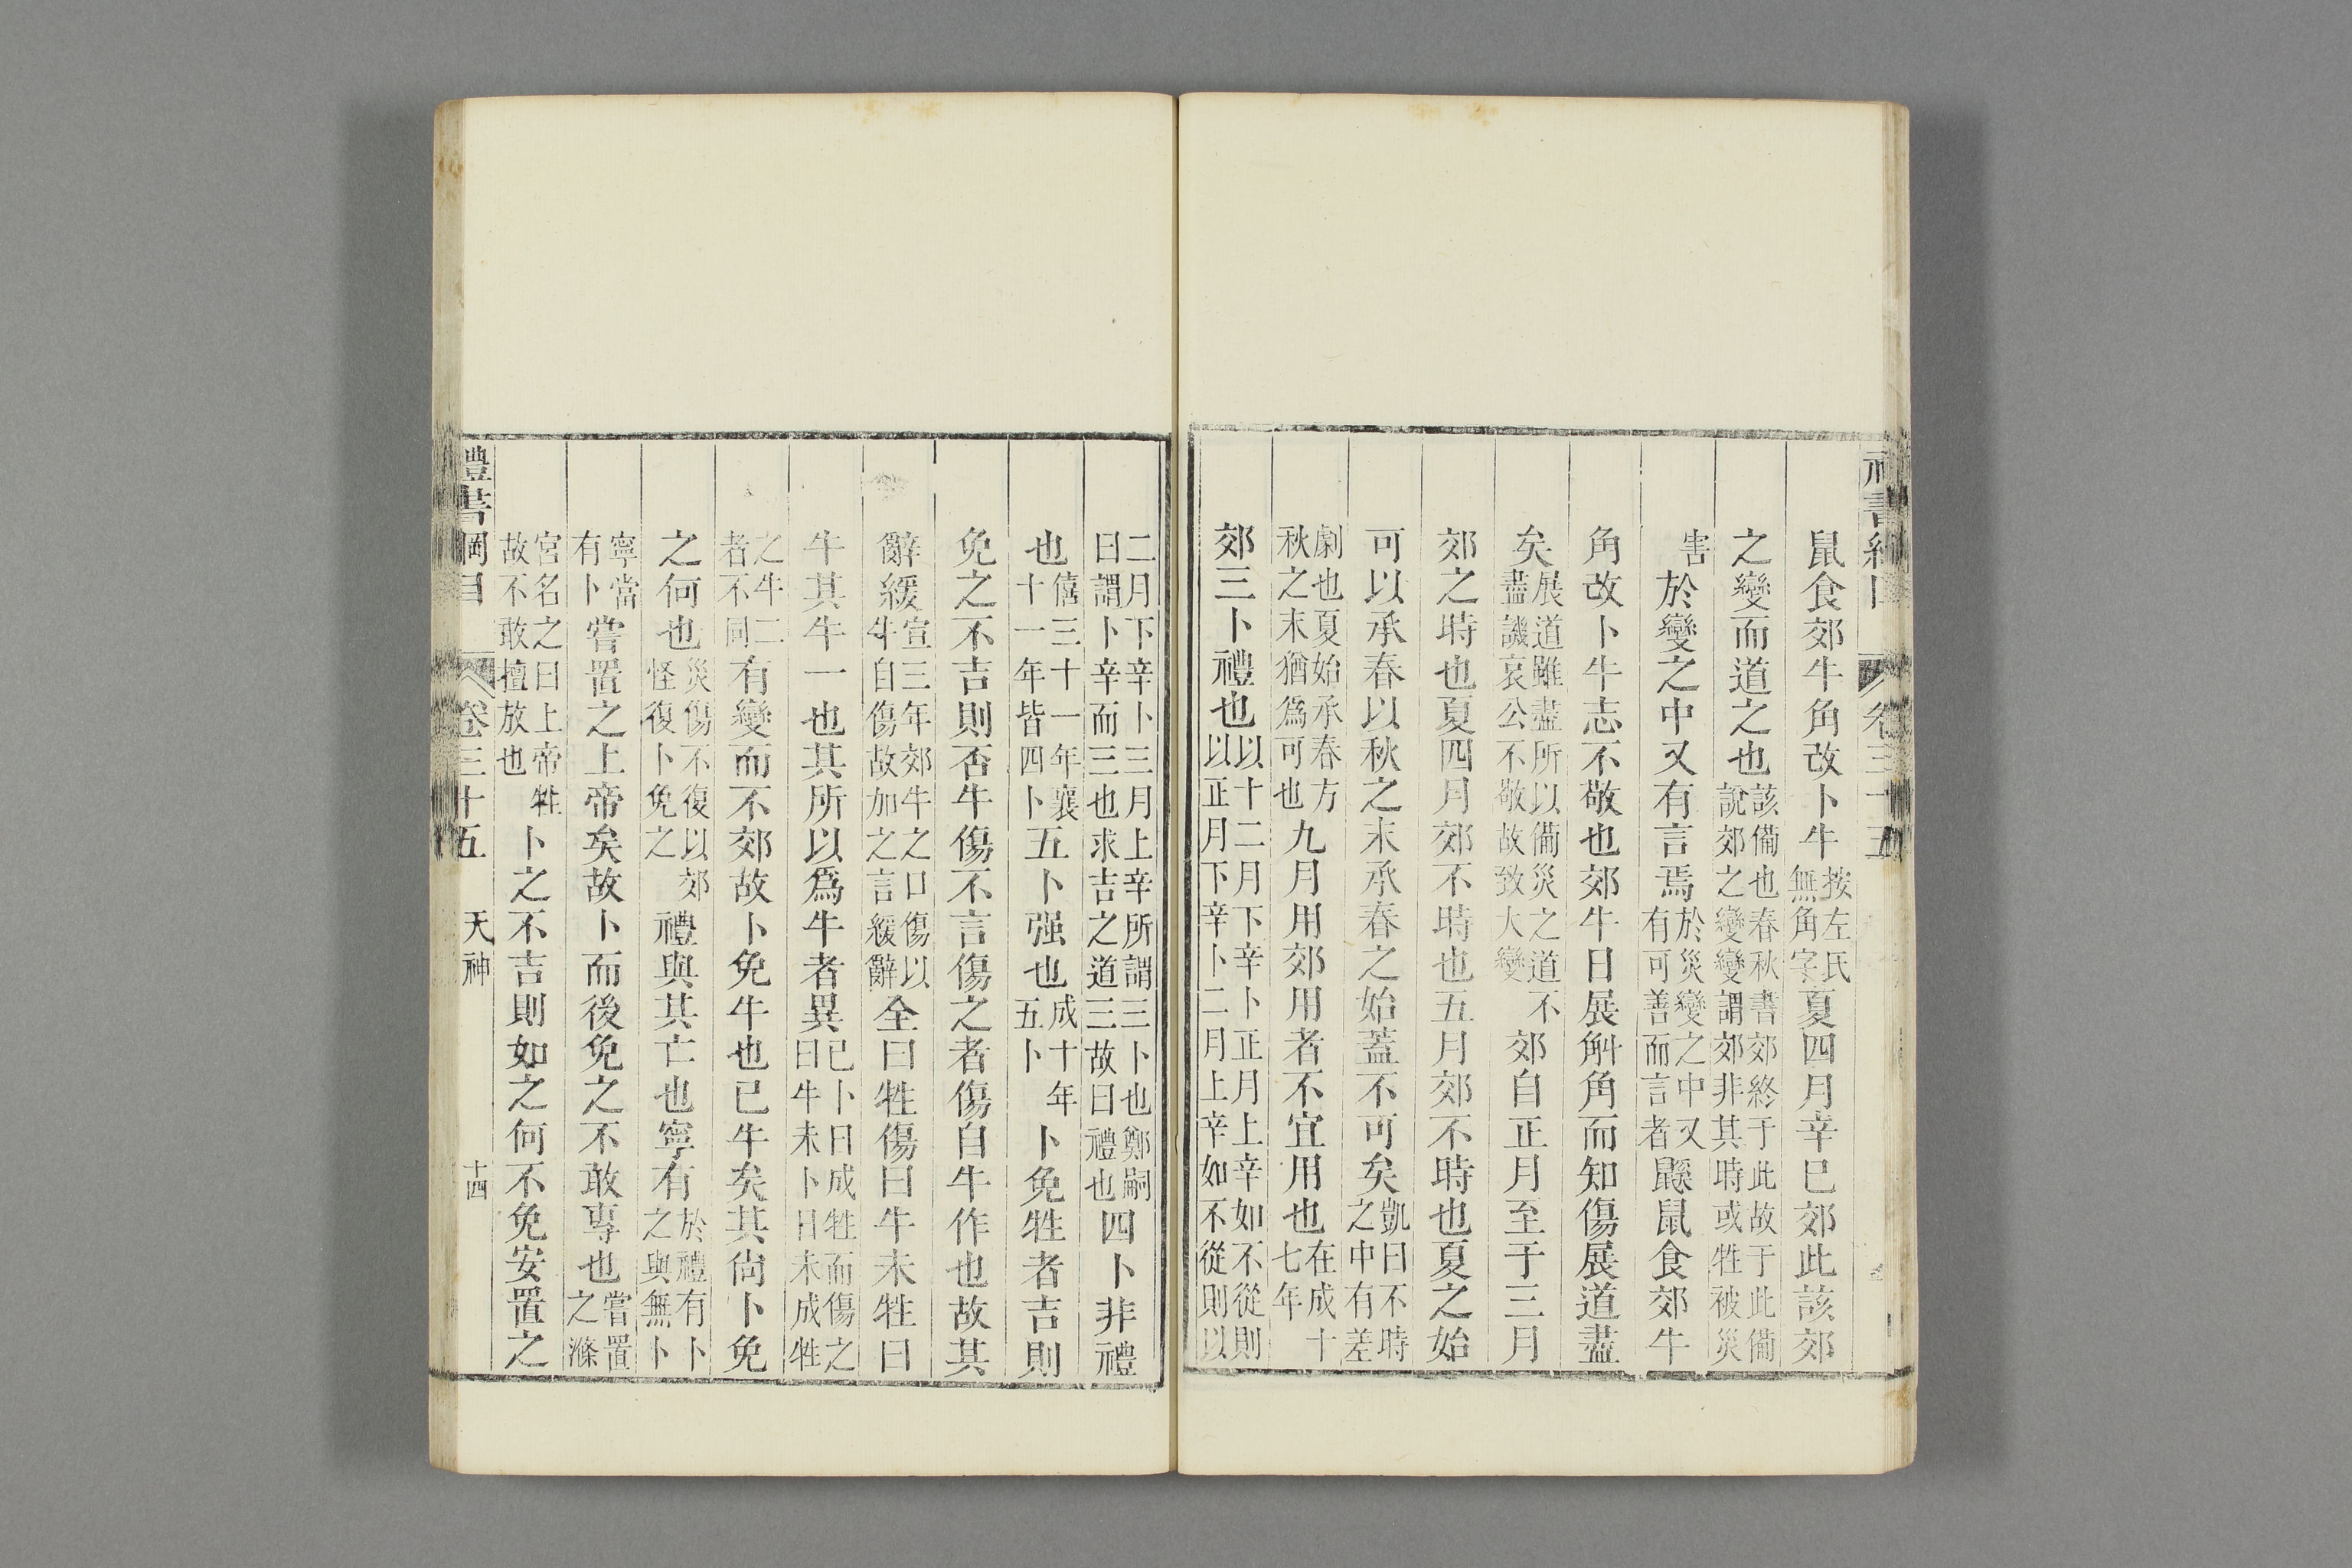 禮書綱目 卷三十五
鼠食郊牛角改卜牛按左氏無角字夏四月辛巳郊此該郊
之變而道之也該備也春秋書郊終于此故于此備說郊之變變謂郊非其時或牲被災
害於變之中又有言焉於災變之中又有可善而言者鼷鼠食郊牛
角改卜牛志不敬也郊牛日展斛角而知傷展道盡
矣展道雖盡所以備災之道不盡譏哀公不敬故致大變郊自正月至于三月
郊之時也夏四月郊不時也五月郊不時也夏之始
可以承春以秋之末承春之始蓋不可矣凱曰不時之中有差
劇也夏始承春方秋之末猶爲可也九月用郊用者不宜用也在成十七年
郊三卜禮也以十二月下辛卜正月上辛如不從則以正月下辛卜二月上辛如不從則以
二月下辛卜三月上辛所謂三卜也鄭嗣曰謂卜辛而三也求吉之道三故曰禮也四卜非禮
也僖三十一年襄十一年皆四卜五卜强也成十年五卜卜免牲者吉則
免之不吉則否牛傷不言傷之者傷自牛作也故其
辭緩宣三年郊牛之口傷以牛自傷故加之言緩辭全曰牲傷曰牛未牲曰
牛其牛一也其所以爲牛者異已卜日成牲而傷之曰牛未卜日未成牲
之牛二者不同有變而不郊故卜免牛也已牛矣其尙卜免
之何也災傷不復以郊怪復卜免之禮與其亡也寧有於禮有卜之與無卜
寧當有卜嘗置之上帝矣故卜而後免之不敢專也嘗置之滌
宮名之曰上帝牲故不敢擅放也卜之不吉則如之何不免安置之
禮書綱目 卷三十五 天神 十四